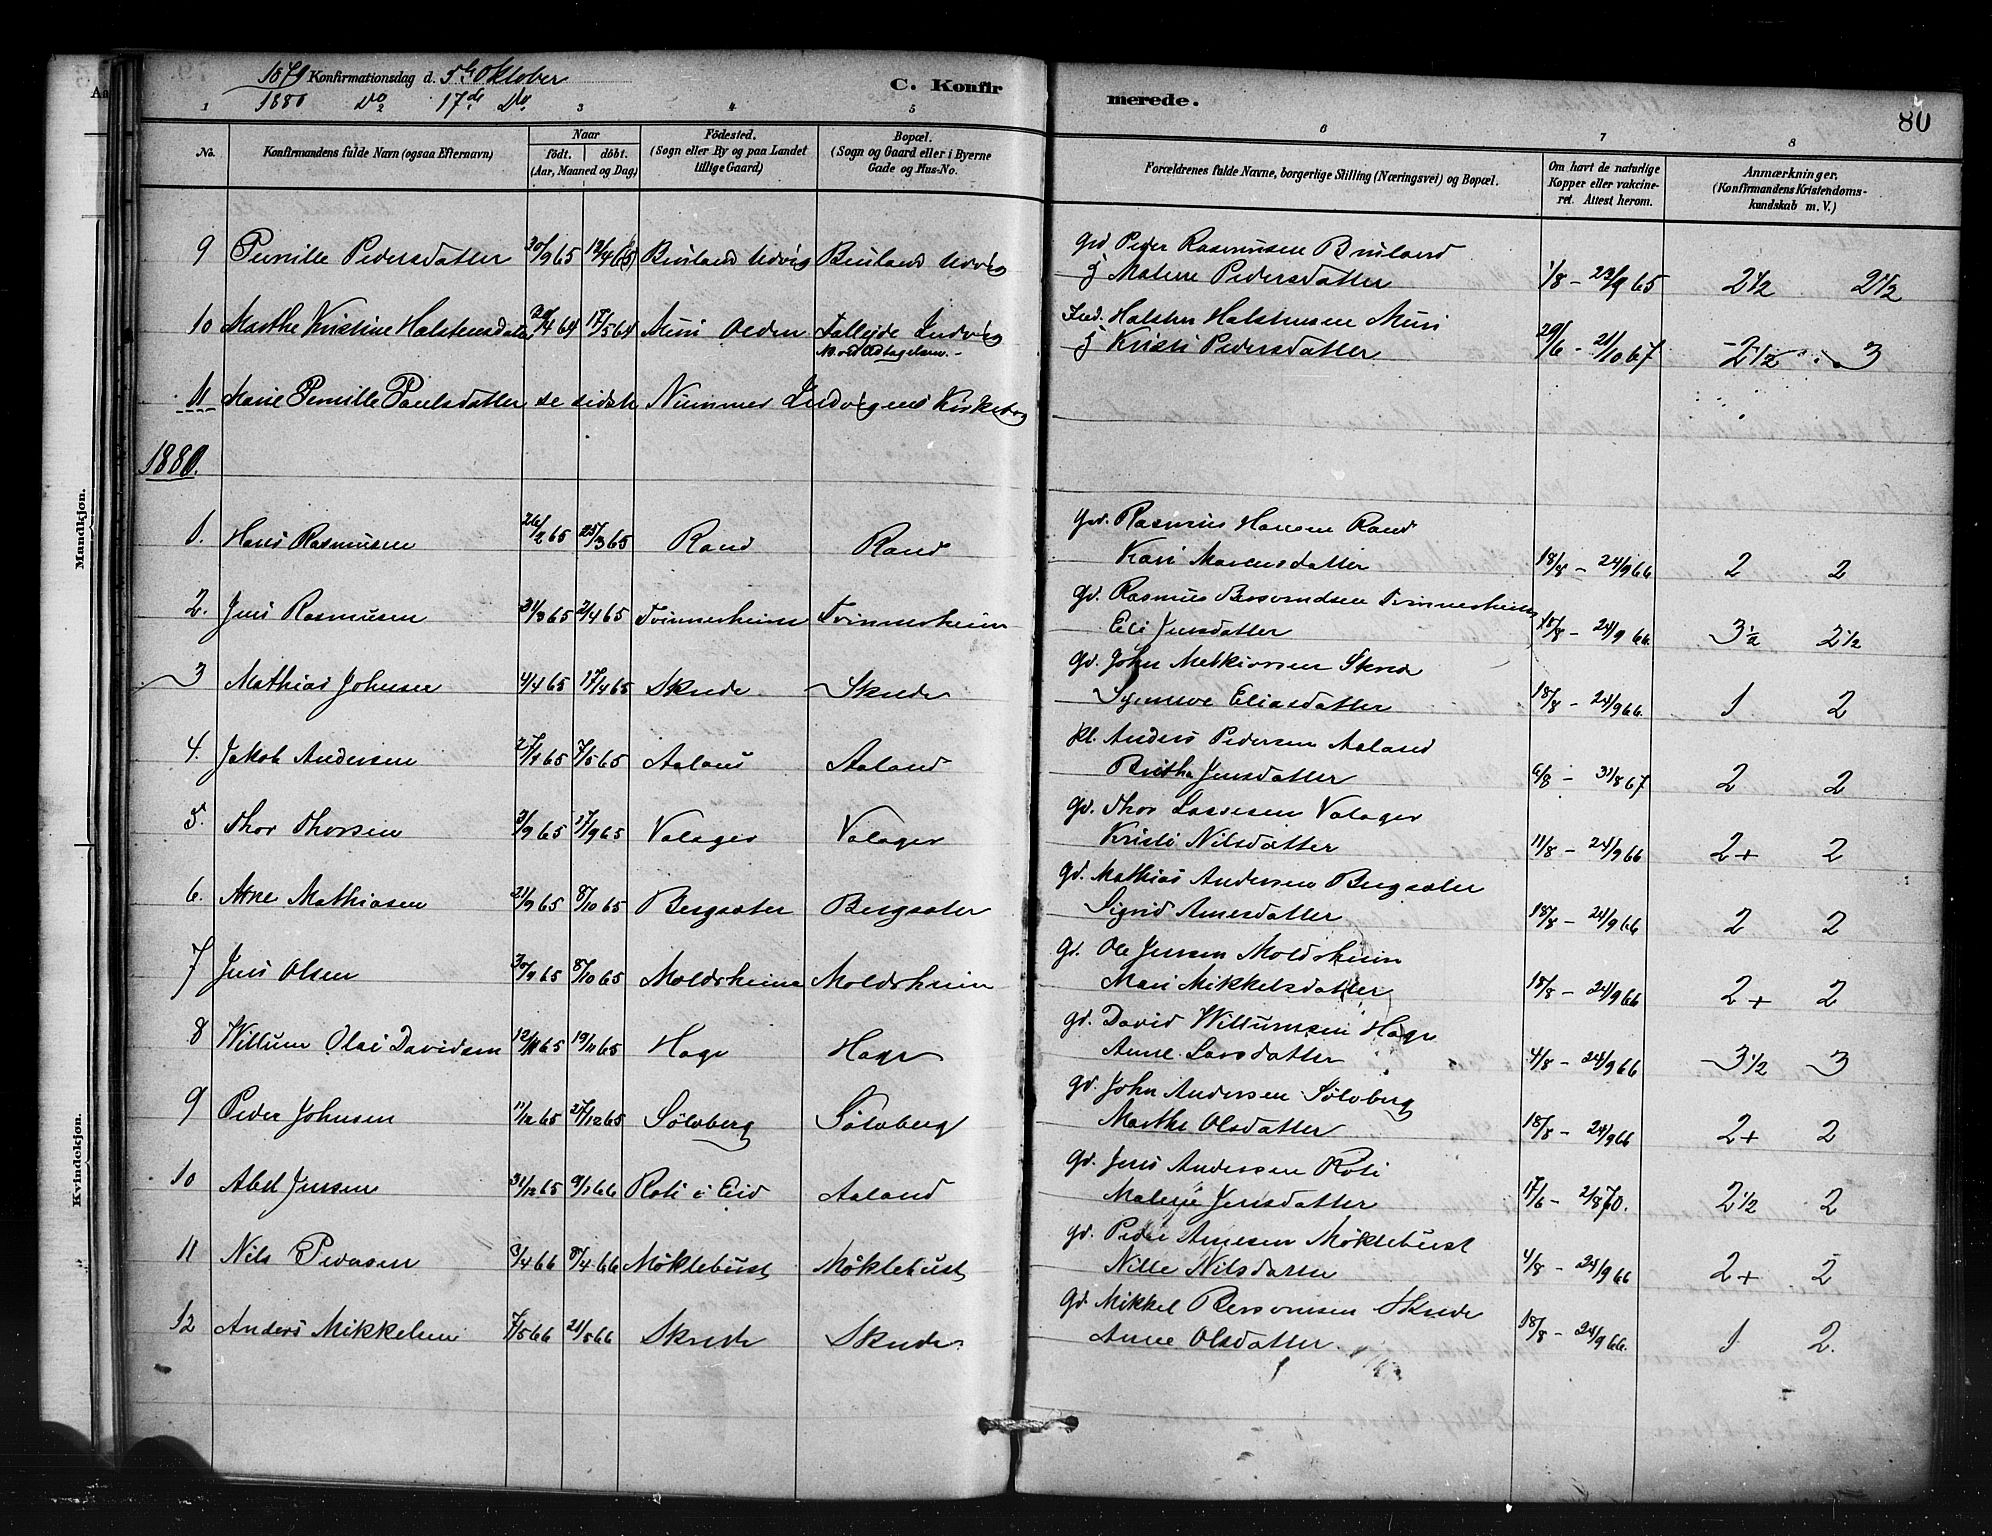 1879 Konfirmationsdag d. 5te Oktober
1880 Do 17de Do
C. Konfirmerede.
80
1 3 4 5 6 7 8
No. Konfirmandens fulde Navn (ogsaa Efternavn) Naar födt. döbt. (Aar, Maaned og Dag) Födested. (Sogn eller By og paa Landet tillige Gaard) Bopæl. (Sogn og Gaard eller i Byerne Gade og Hus-No. Forældrenes fulde Navne, borgerlige Stilling (Næringsvei) og Bopæl. Om havt de naturlige Kopper eller vakcineret. Attest herom. Anmærkninger. (Konfirmandens Kristendomskundskab m. V.)
Mandkjøn.
Kvindekjøn.
9 Pernille Pedersdatter Gd Peder Rasmussen
Malene Pedersdatter 2 1/2 2 1/2
10 Marthe Kristine Halstensdatter Muri Olden Indvig Halsten Halstensen Muri
Kristi Pedersdatter 29/6 - 2 1/2 3
11 Marie Pernille Paulsdatter se sidste Nummer Indvigens Kirkebog
1880.
1. Hans Rasmussen 26/2 65 25/3 65 Rand Rand gd. Rasmus Hansen Rand
Kari 18/8 - 24/9 66 2 2
2. Jens Rasmusen 2/4 65 Tvinnerheim Tvinnerheim gd. Rasmus Tvinnerheim
Eli Jensdatter 18/8 - 24/9 66. 3 1/2 2 1/2
3 Mathias Johnsen 4/4 65 17/4 65 Skrede Skrede gd. John Melkiorsen Skrede
Eliasdatter 18/8 - 24/9 66. 1 2
4. Jakob Andersen 27/4 65 7/5 65 Aaland Aaland pl. Anders Pedersen Aaland
Britha Jensdatter 6/8 - 31/8 67 2 2
5. Thor Thorsen 3/9 65 17/9 65 Valager Valager gd. Thor Lassesen Valager
Kristi Nilsdatter 11/8 - 24/9 66 2+ 2
6. Arne Mathiasen 21/9 65 8/10 65 Bergsæter Bergsæter gd. Mathias Andersen Bergsæter
Sigrid Arnesdatter 18/8 - 24/9 66 2 2
7 Jens Olsen 30/9 65 8/10 65 Moldsheim Moldsheim gd. Ole Jensen Moldsheim
Mari Mikkelsdatter 18/8 - 24/9 66 2+ 2
8 Willum Olai Davidsen 12/11 65 19/11 65 Hage Hage gd. David Willumsen Hage
Anne Larsdatter 4/8 - 24/9 66 3 1/2 3
9 Peder Johnsen 11/12 65 27/12 65 Sölvberg Sölvberg gd. John Andersen Sölvberg
Marthe Olsdatter 18/8 - 24/9 66 2+ 2
10 Abel Jensen 31/12 65 9/1 66 Roti i Eid Aaland gd. Jens Andersen Roti
Jensdatter 17/6 - 2/8 70. 2 1/2 2
11 Nils Pedersen 3/4 66 8/4 66 Möklebust Möklebust gd. Peder Arnesen Möklebust
Nille Nilsdatter 4/8 - 24/9 66 2+ 2
12 Anders Mikkelsen 7/5 66 21/5 66 Skrede Skrede gd. Mikkel Skrede
Anne Olsdatter 18/8 - 24/9 66. 1 2.